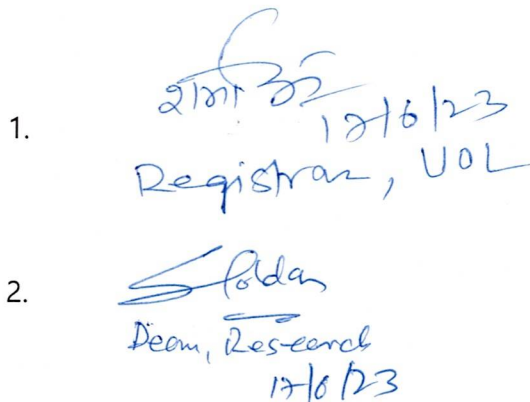 1.
17/6/23
Registrar, UOL
2.
Dean, Research
17/6/23